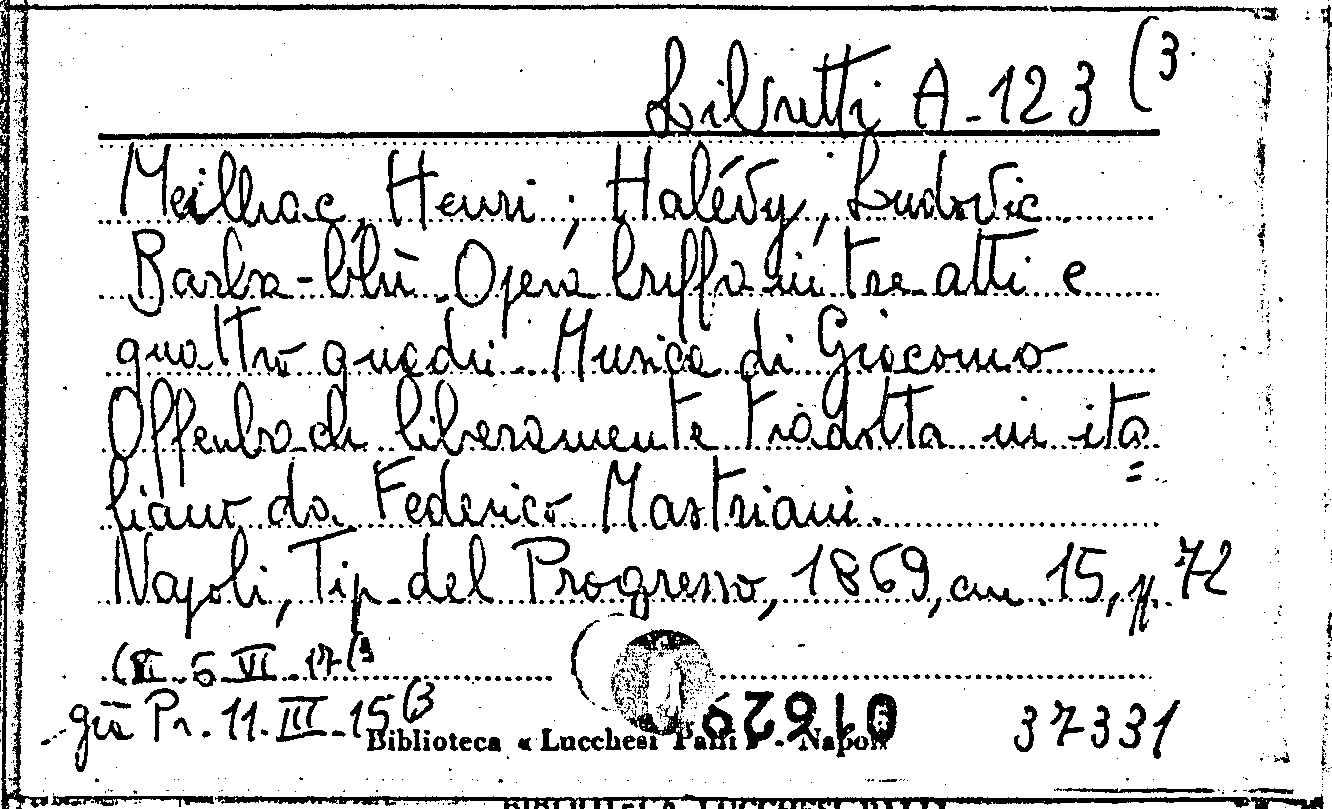 Libretti A-123 (3
Meilhac, Henri; Halévy, Ludovic.
Barba-blù. Opera buffa in tre atti e
quattro quadri. Musica di Giacomo
Offenbach liberamente tradotta in ita
=
liano da Federico Mastriani.
Napoli, Tip. del Progresso, 1869, cm. 15, p. 72
5 VI 17 (3
già Pr. 11. III 15 (3
Biblioteca « Lucchesi Palli » - Napoli
37331
BIBLIOTECA LUCCHESI PALLI